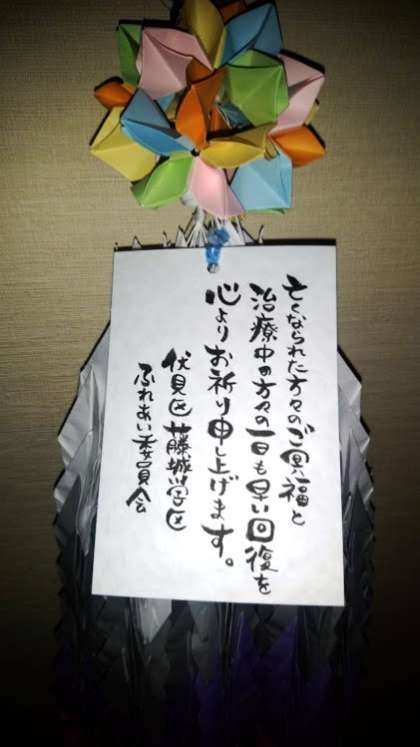 亡くなられた方々のご冥福と
治療中の方々の一日も早い回復を
心よりお祈り申し上げます。
伏見区藤城学区
ふれあい委員会